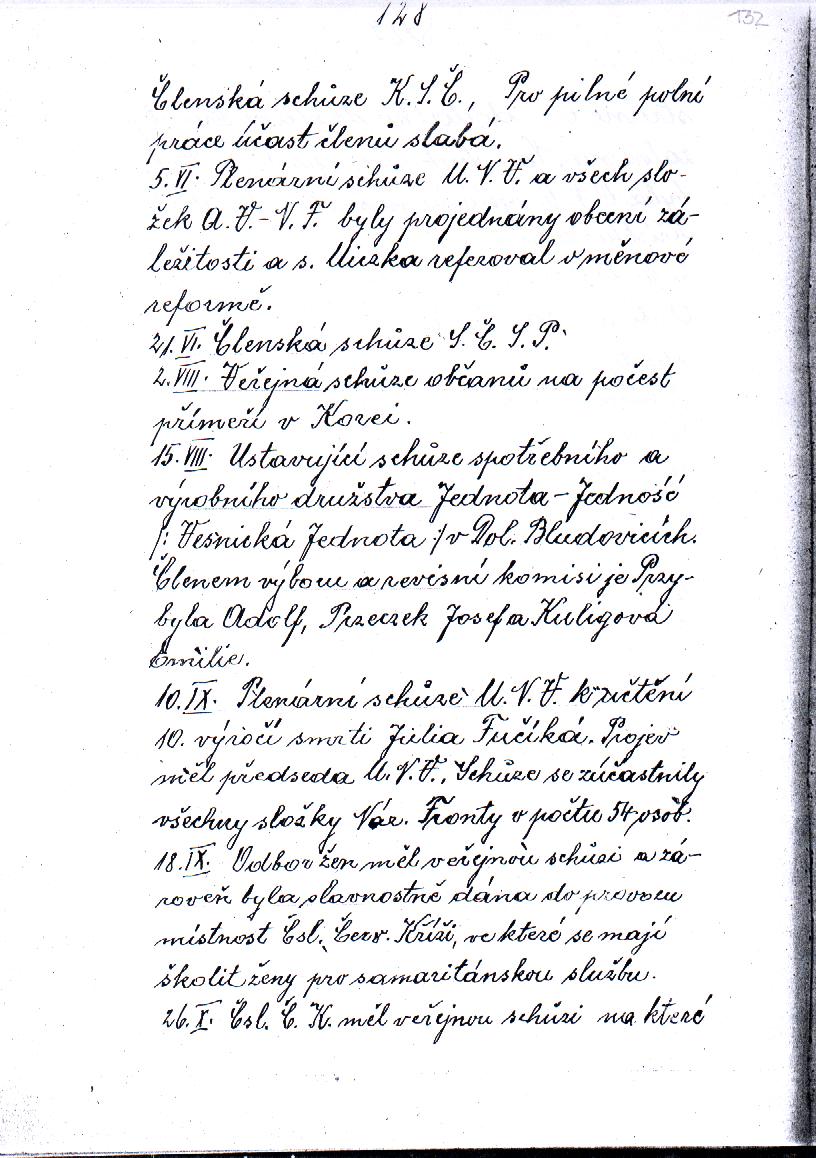 128
132
Členská schůze K.S.Č., Pro pilné polní
práce účast členů slabá.
5.VI. Plenární schůze M.N.V. a všech slo-
žek A.V.-N.F. byly projednány obecní zá-
ležitosti a s. Uiczka referoval o měnové
reformě.
21.VI. Členská schůze S.Č.S.P.
2.VIII. Veřejná schůze občanů na počest
příměří v Korei.
15.VIII. Ustavující schůze spotřebního a
výrobního družstva Jednota-Jedność
/: Vesnická Jednota :/ v Dol. Bludovicích.
Členem výboru a revisní komisi je Przy-
byla Adolf, Przeczek Josef a Kuligová
Emilie.
10.IX. Plenární schůze M.N.V. k uctění
10. výročí smrti Julia Fučíka. Projev
měl předseda M.N.V., Schůze se zúčastnily
všechny složky Nár. Fronty v počtu 54 osob.
18.IX. Odbor žen měl veřejnou schůzi a zá-
roveň byla slavnostně dána do provozu
místnost Čsl. Červ. Kříži, ve které se mají
školit ženy pro samaritánskou službu.
26.X. Čsl. Č. K. měl veřejnou schůzi na které